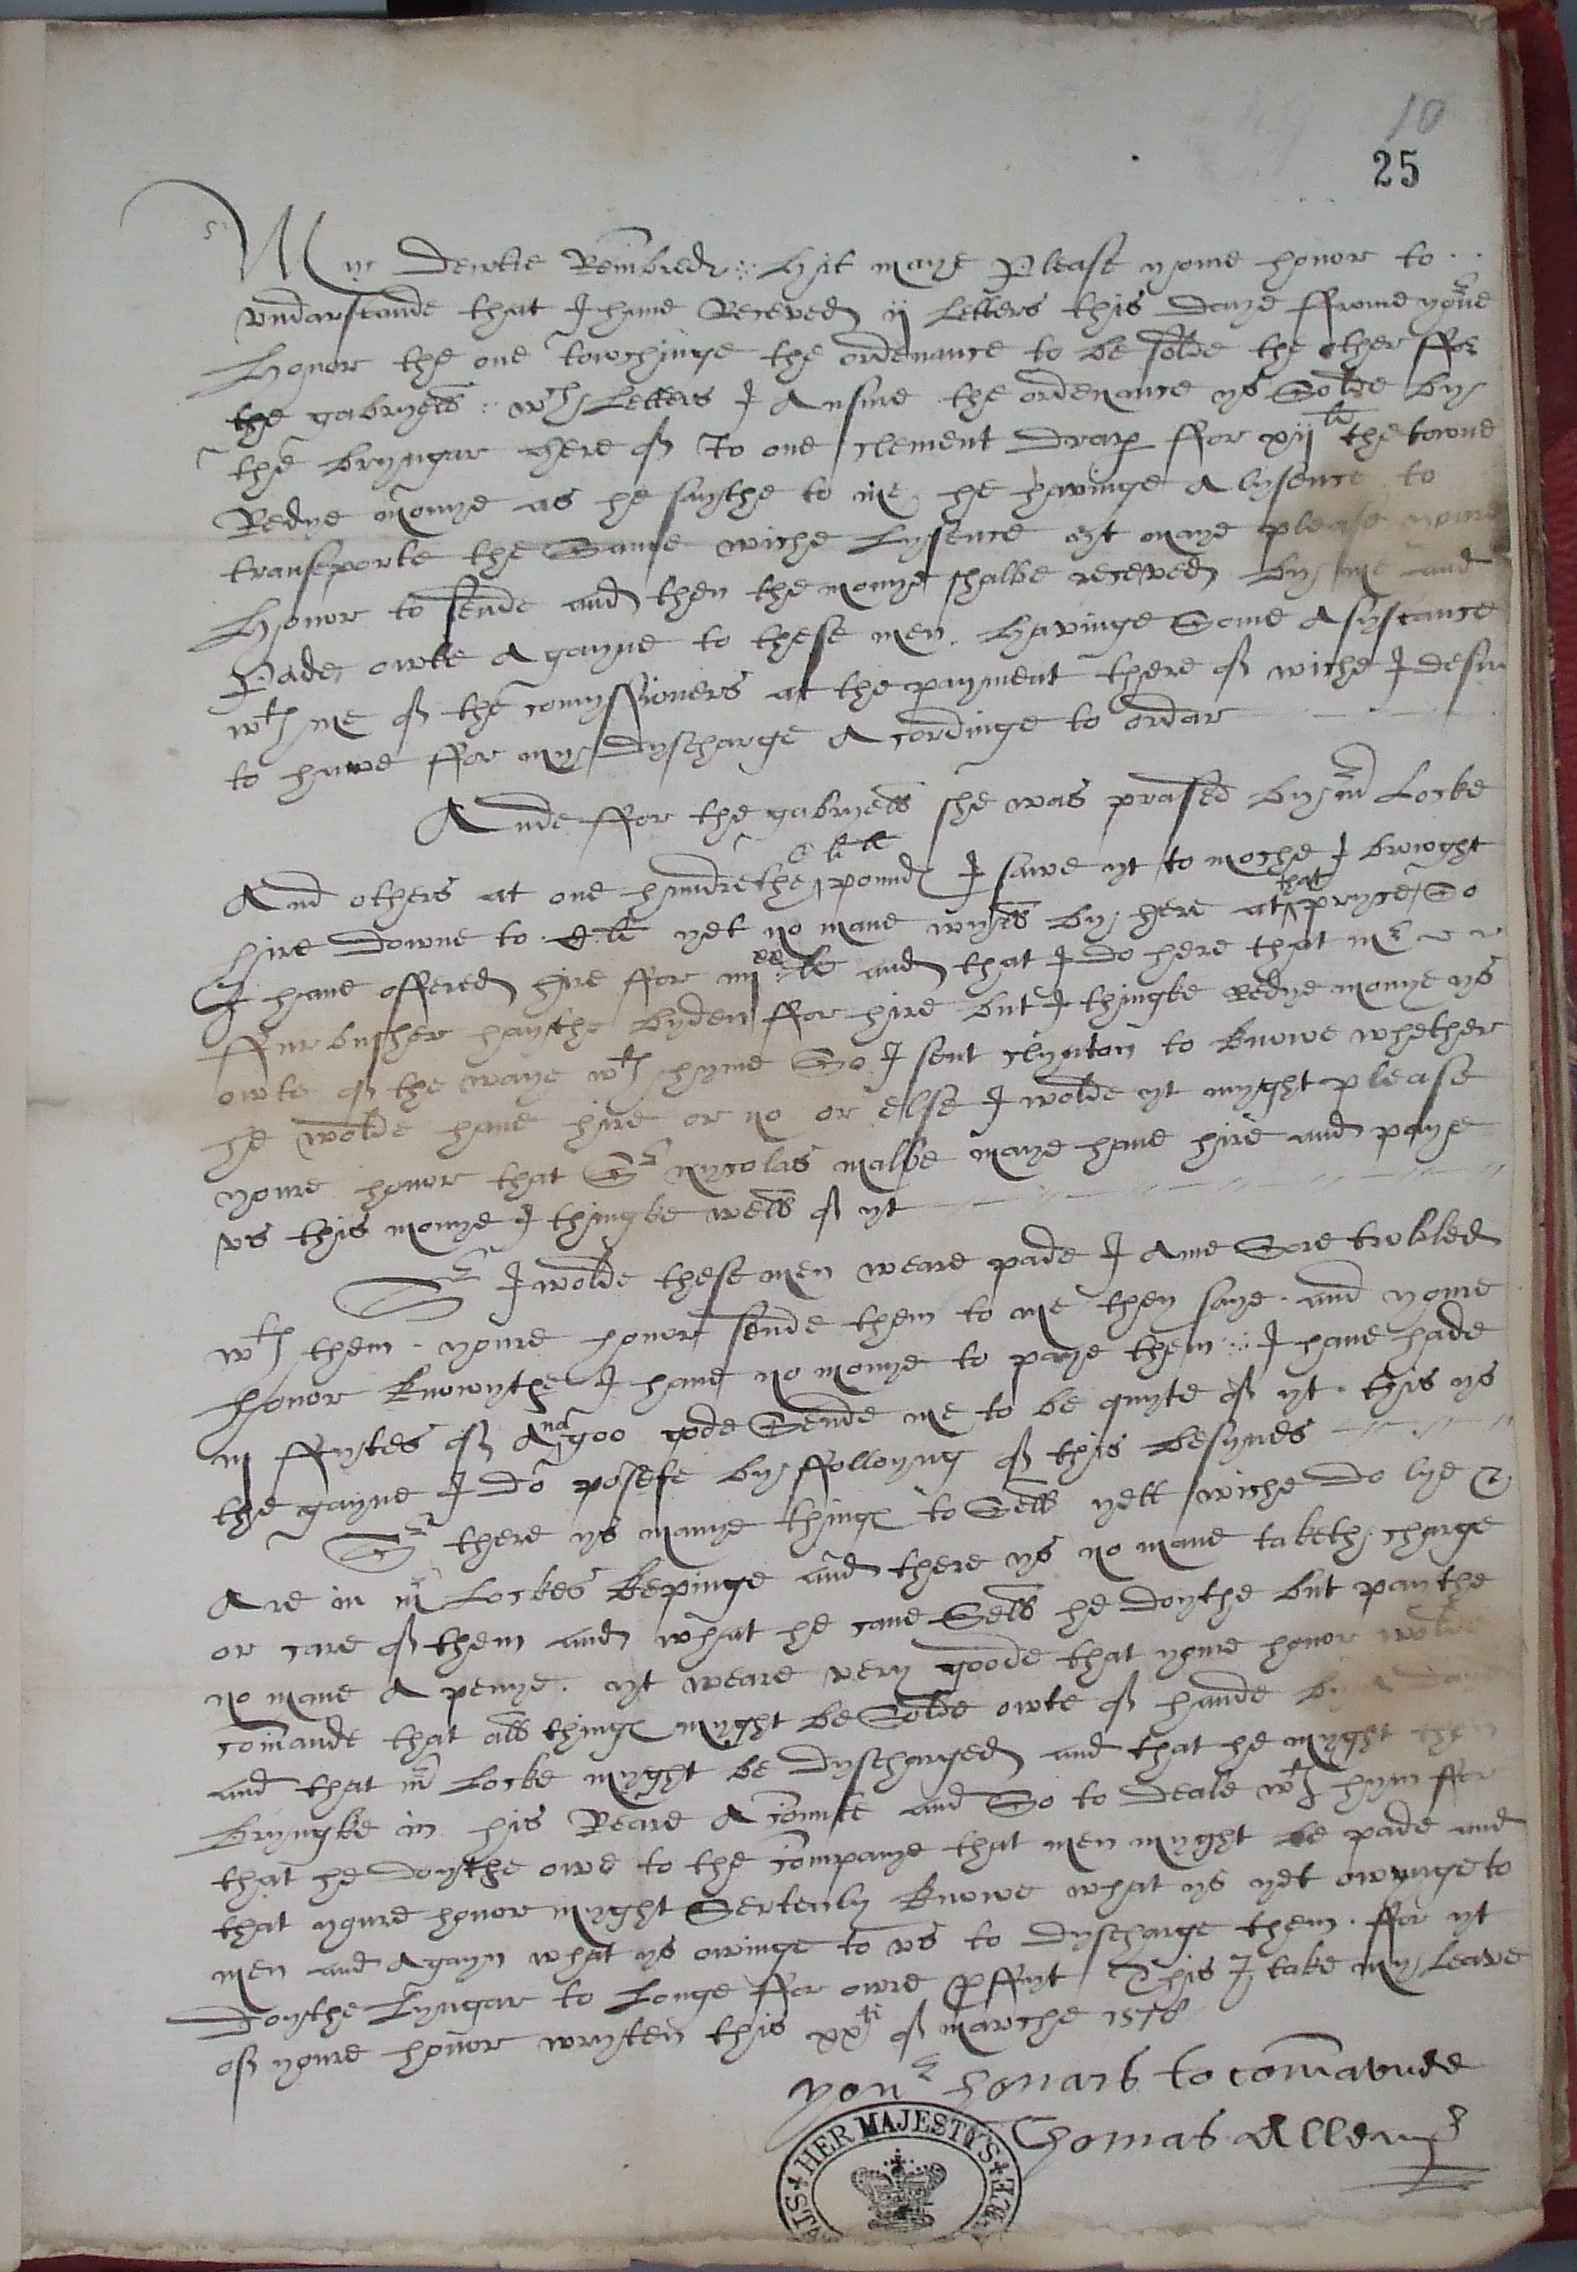 10
25
My dewtie Remᵇred hit maye please youre honor to
undarstande that I haue Receved ij Letters this daye ffrome youre
Honor the one towchinge the ordenance to be solde the other ffor
the gabryells wᶜʰ Letters I Ansure the ordenance ys Solde by
the bryngar here of To one clement drap ffor xijˡⁱ the towne
Redye monye as he saythe to me he havinge A lysence to
transeporte the Same wiche Lysence yt maye please youre
Honor to sende and then the monye shalbe receved by me and
Pade owte Agayne to these men. havinge Some Asystance
wᵗʰ me of the comyssioners at the payment there of wiche I desire
to haue ffor my dyscharge Acordinge to ordar
Ande ffor the gabryells she was prased by mʳ Locke
And others at one hundrethe L li pound I sawe yt to moche I browght
hire downe to C li yet no mane wyls by here at that pryce So
I haue offered hire for iiijˣˣ li and that I do here that mʳ
ffurbusher haythe byden ffor hire but I thingke Redye monye ys
owte of the waye wᵗʰ hyme So I sent clynton to knowe whether
he wolde haue hire or no or else I wolde yt myght please
youre honor that Sʳ nycolas malbe maye haue hire and paye
vs this monye I thingke wells of yt
Sʳ I wolde these men weare pade I Ame Sore trobled
wᵗʰ them. youre honor sende them to me they saye. and youre
honor knowythe I haue no monye to paye them I haue hade
iij ffytes of Angoo gode Sende me to be quyte of yt. this ys
the gayne I do posese by ffolloyng of this besynes
Sʳ there ys manye things to Sells yett wiche do lye &
Are in mʳ Lockes kepinge and there ys no mane taketh charge
or care of them and what he cane Sells he doythe but paythe
no mane A penye. yt weare very goode that youre honor wolde
comande that alls things myght be Solde owte of hande by A daye
and that mʳ Locke myght be dyscharged and that he myght then
bryngke in his Reare Acounte and So to deale wᵗʰ hym ffor
that he doythe owe to the companye that men myght be pade and
that youre honor myght Sertenly knowe what ys yet owynge to
men and Agayn what ys owinge to vs to dyscharge them. ffor yt
doythe Lyngar to Longe ffor owre pffyt This I take my Leave
of youre honor wryten this xxᵗⁱ of marche 1578
youʳ honars to comavnde
Thomas Allen
HER MAJESTY'S